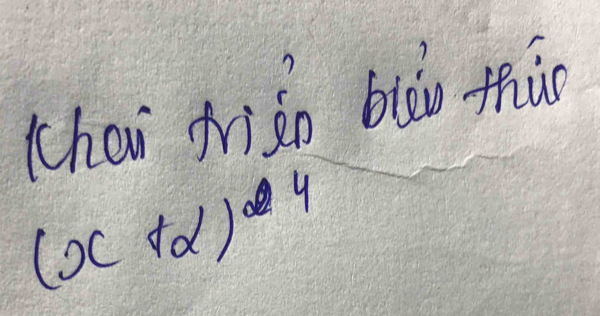 Khai triển biểu thức
(x+2)⁴